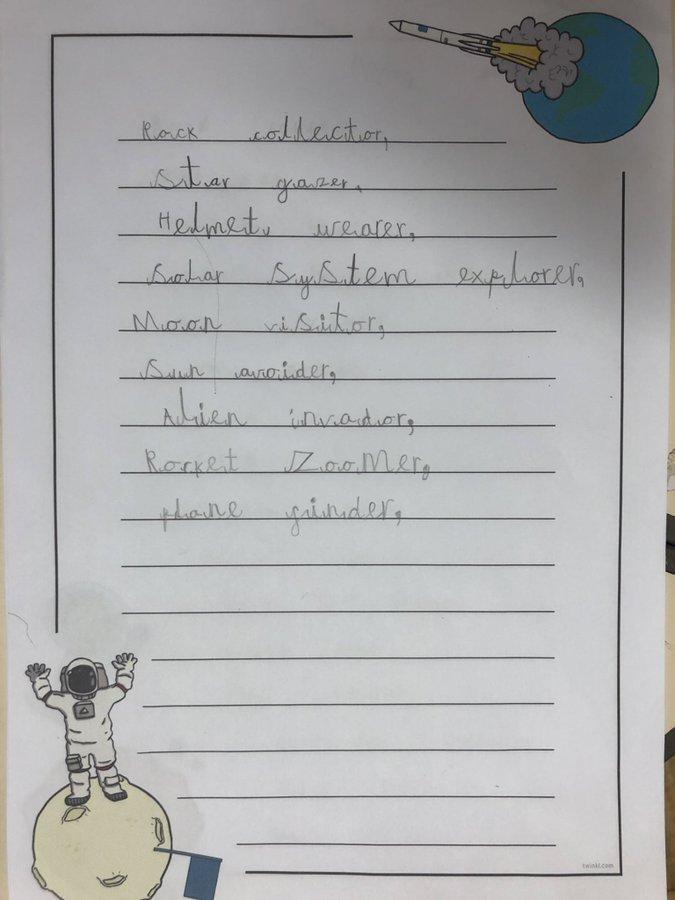 Rock collector,
Star gazer,
Helmet, wearer,
Solar system explorer,
Moon visitor,
Sun avoider,
Alien invador,
Rocket Zoomer,
plane finder,
twinkl.com